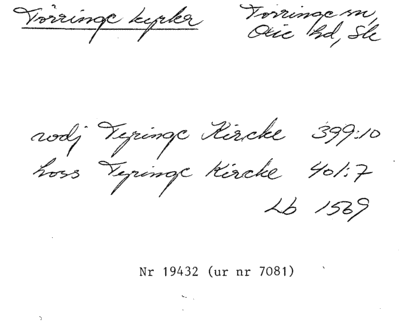 Törringe kyrka Törringe sn,
Oxie hd, Sk
wodj Tyringe Kircke 399:10
hoss Tyringe Kircke 401:7
Lb 1569
Nr 19432 (ur nr 7081)